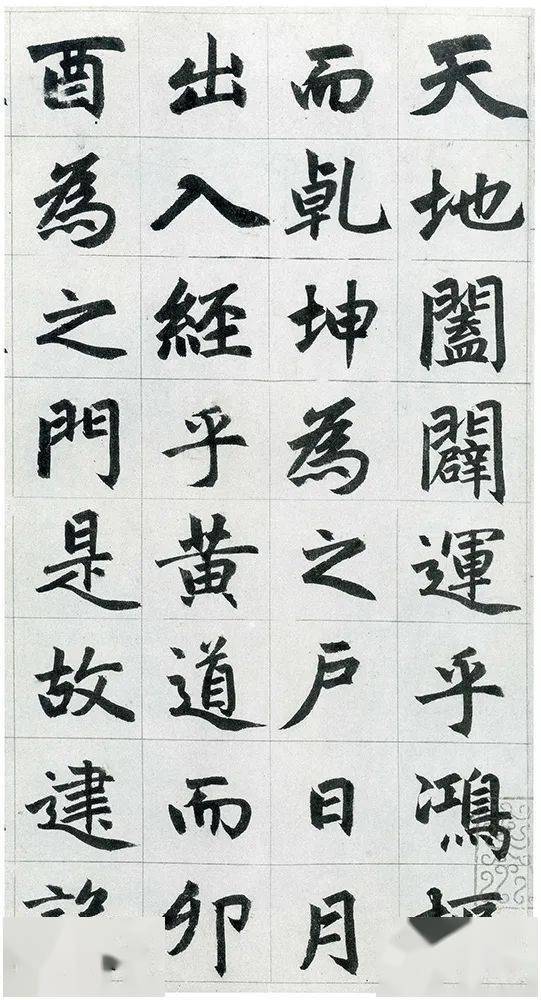 天地闔闢運乎鴻
而乹坤為之户日月
出入經乎黄道而卯
酉為之門是故建